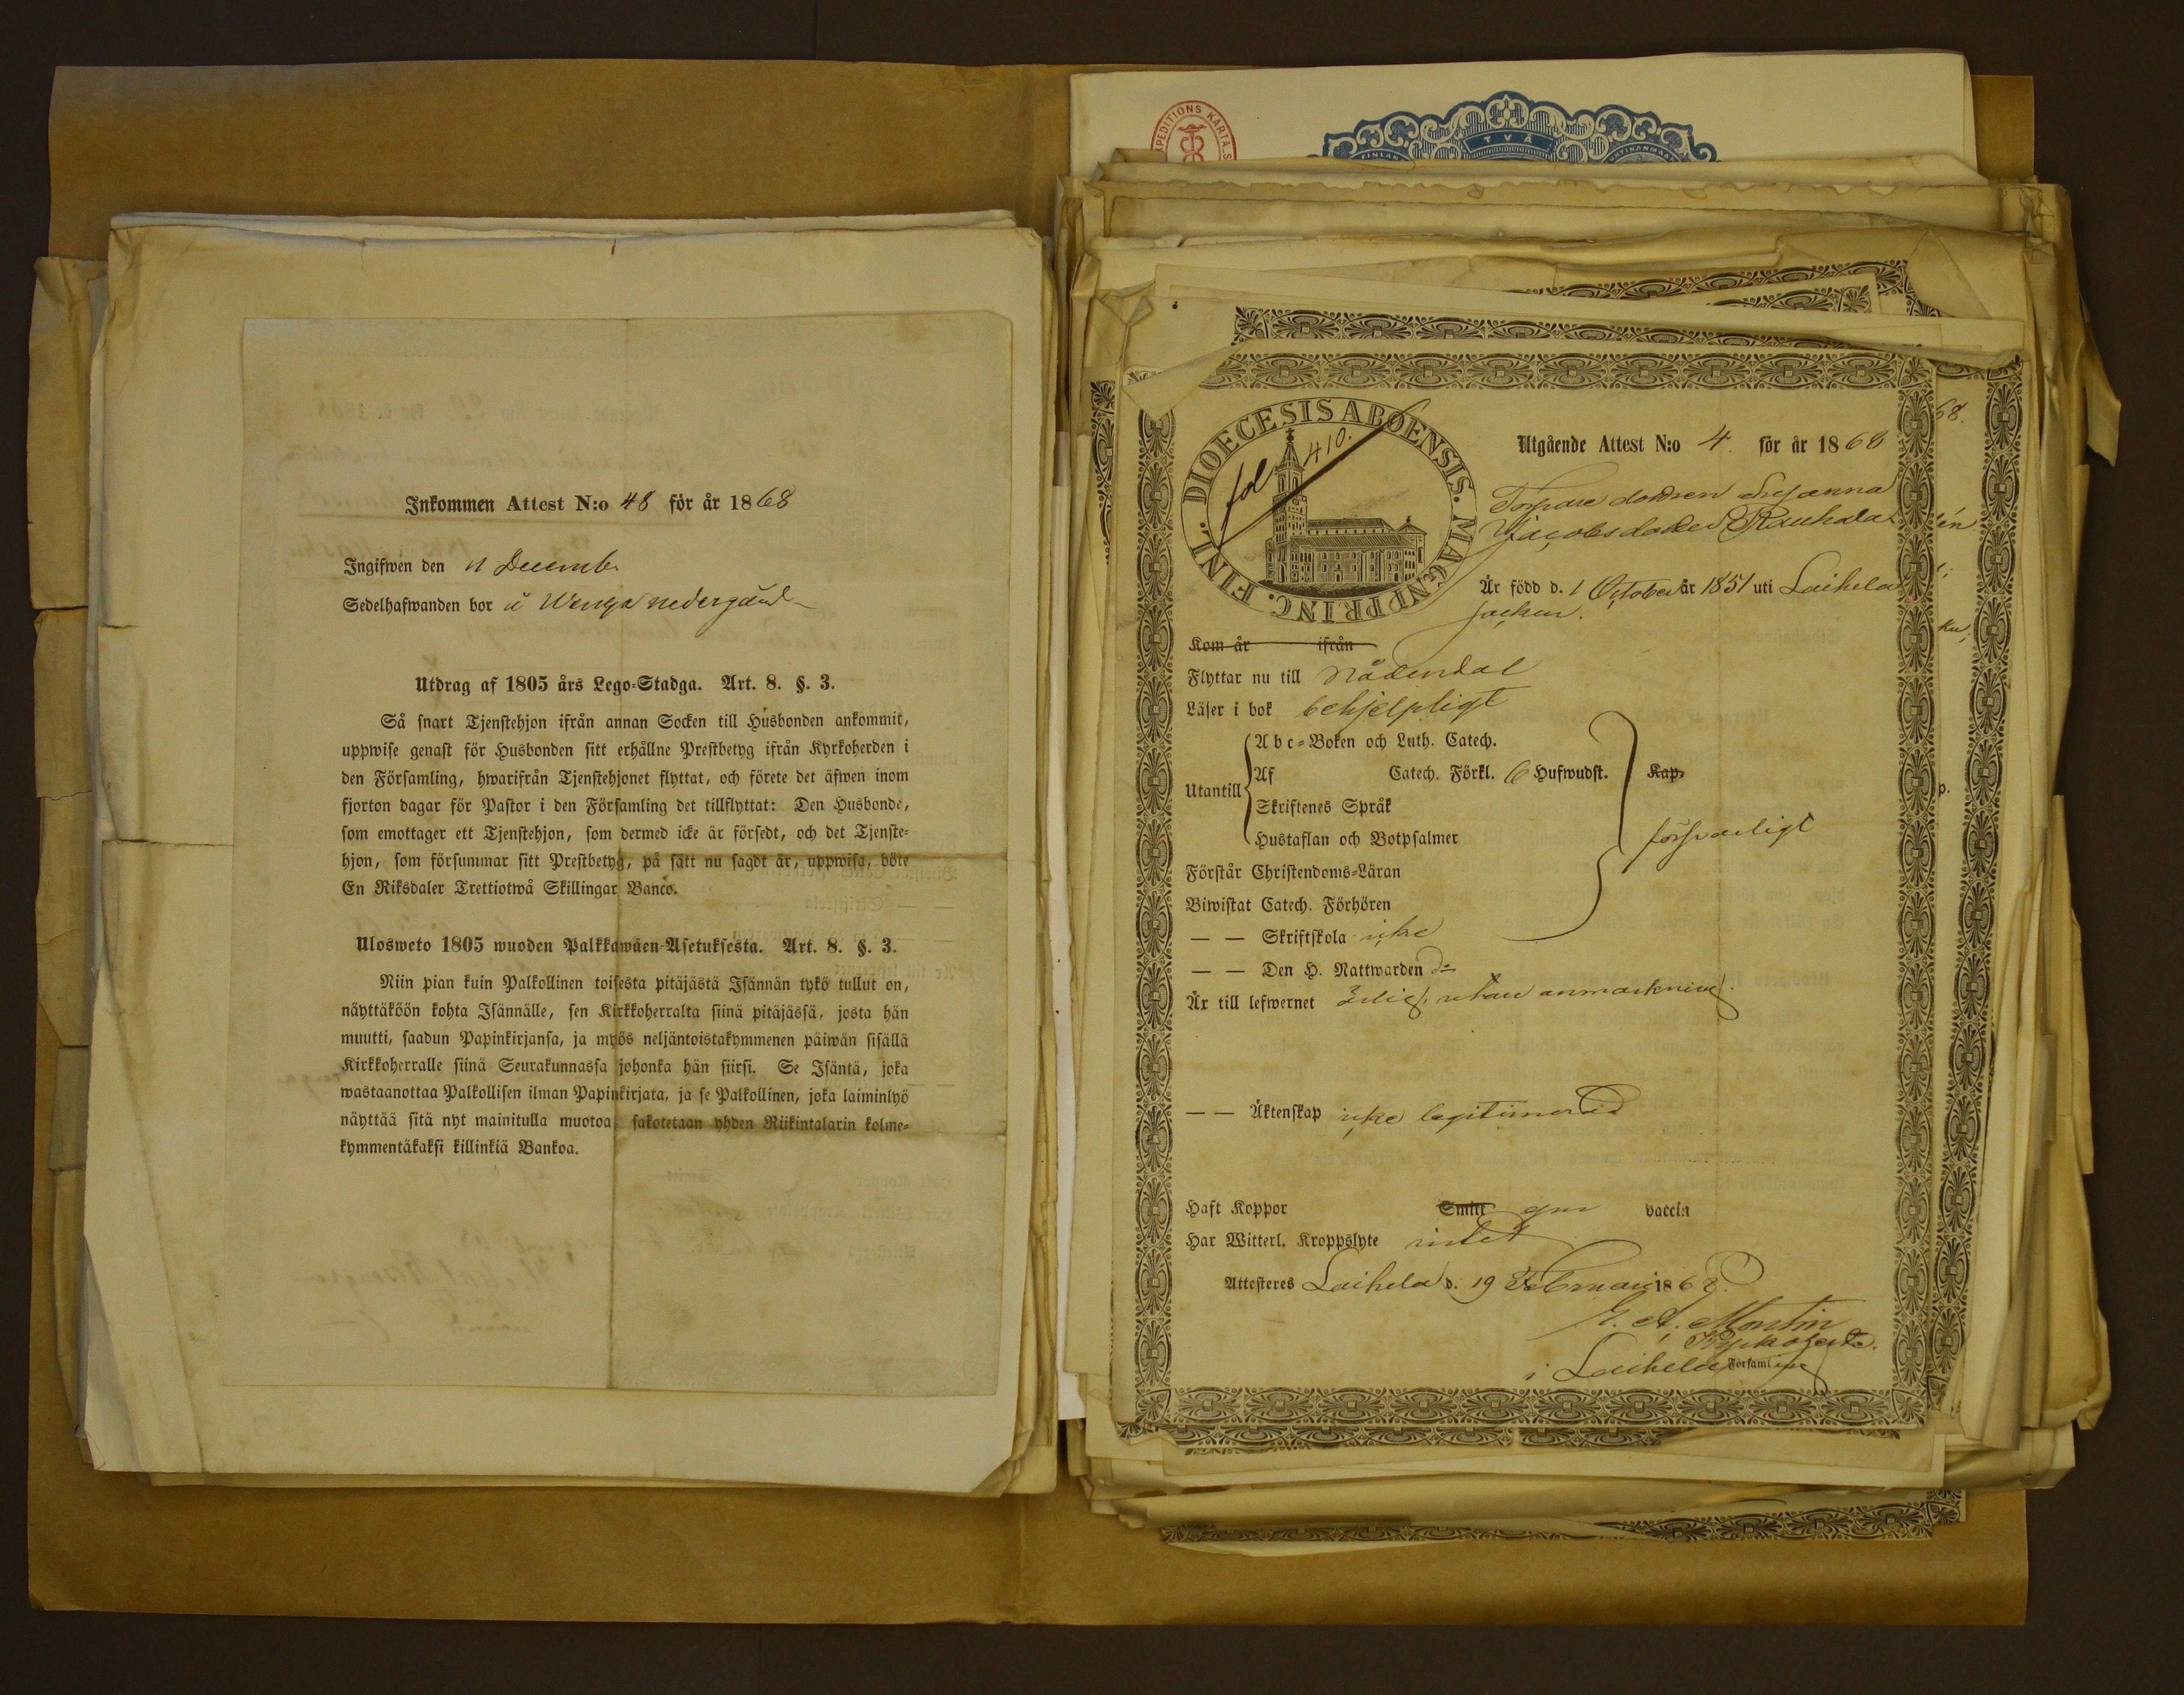 Inkommen Attest N:o 48 för år 1868
Ingifwen den 11 Decemb.
Sedelhafwanden bor å Wenga nedergård
Utdrag af 1805 års Lego-Stadga. Art. 8. §. 3.
Så snart Tjenstehjon ifrån annan Socken till Husbonden ankommit,
uppwise genast för Husbonden sitt erhållne Prestbetyg ifrån Kyrkoherden i
den Församling, hwarifrån Tjenstehjonet flyttat, och förete det äfwen inom
fjorton dagar för Pastor i den Församling det tillflyttat: Den Husbonde,
som emottager ett Tjenstehjon, som dermed icke är försedt, och det Tjenste-
hjon, som försummar sitt Prestbetyg, på sätt nu sagdt är, uppwisa, böte
En Riksdaler Trettiotwå Skillingar Banco.
Ulosweto 1805 wuoden Palkkawäen-Asetuksesta. Art. 8. §. 3.
Niin pian kuin Palkollinen toisesta pitäjästä Isännän tykö tullut on,
näyttäköön kohta Isännälle, sen Kirkkoherralta siinä pitäjässä, josta hän
muutti, saadun Papinkirjansa, ja myös neljäntoistakymmenen päiwän sisällä
Kirkkoherralle siinä Seurakunnassa johonka hän siirsi. Se Isäntä, joka
wastaanottaa Palkollisen ilman Papinkirjata, ja se Palkollinen, joka laiminlyö
näyttää sitä nyt mainitulla muotoa, sakotetaan yhden Riikintalarin kolme-
kymmentäkaksi killinkiä Bankoa.
EXPEDITIONS KARTA.S
TVÅ
FINLAN
DIOECESIS ABOENSIS. MAGN. PRINC. FINL.
fol 410.
Utgående Attest N:o 4. för år 1868
Torpare dottren Susanna
Jacobsdotter Rauhala
Är född d. 1 October år 1851 uti Laihela
socken.
Kom år ifrån
Flyttar nu till Nådendal
Läser i bok behjelpligt
Utantill
Abc-Boken och Luth. Catech.
Af Catech. Förkl. 6 Hufwudst. Kap.
Skriftenes Språk
Hustaflan och Botpsalmer
försvarligt
Förstår Christendoms-Läran
Biwistat Catech. Förhören
— — Skriftskola icke
— — Den H. Nattwarden d:o
Är till lefwernet ärlig, utan anmärkning.
— — Äktenskap icke legitimerad
Haft Koppor Smitt gm vaccin
Har Witterl. Kroppslyte intet
Attesteres Laihela d. 19 Februari 1868.
G. A. Montin
Kyrkoherde.
i Laihela Församling
68.
én
ku;
p.